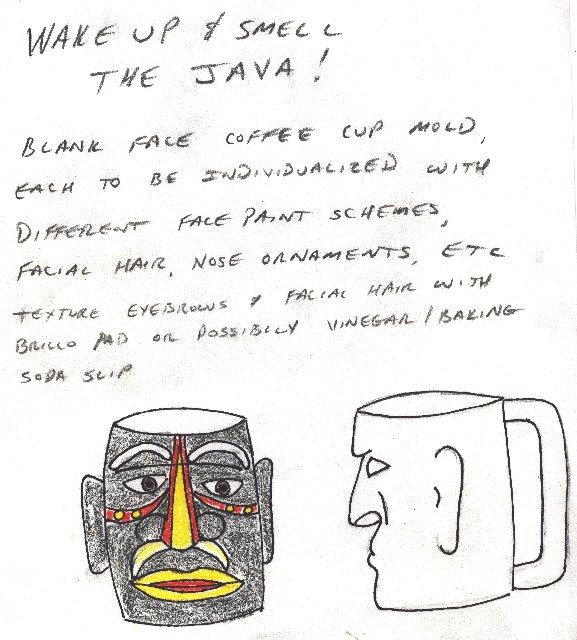 WAKE UP & SMELL
THE JAVA!
BLANK FACE COFFEE CUP MOLD,
EACH TO BE INDIVIDUALIZED WITH
DIFFERENT FACE PAINT SCHEMES,
FACIAL HAIR, NOSE ORNAMENTS, ETC
TEXTURE EYEBROWS & FACIAL HAIR WITH
BRILLO PAD OR POSSIBILY VINEGAR/BAKING
SODA SLIP